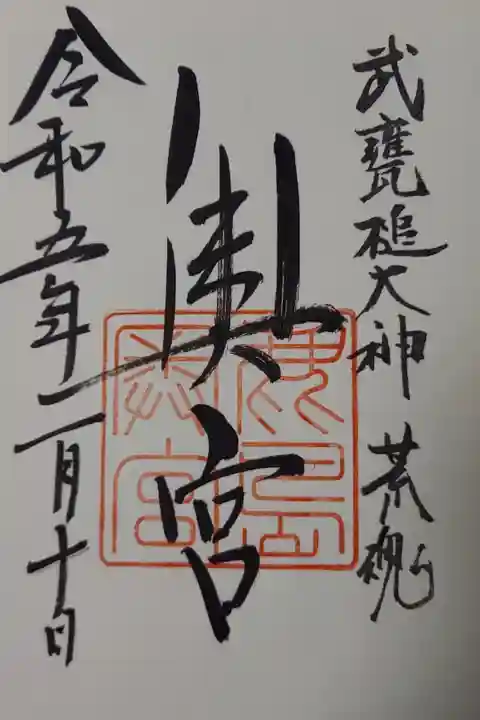 武甕槌大神 荒魂
奥宮
鹿島奥宮
令和五年一月十日